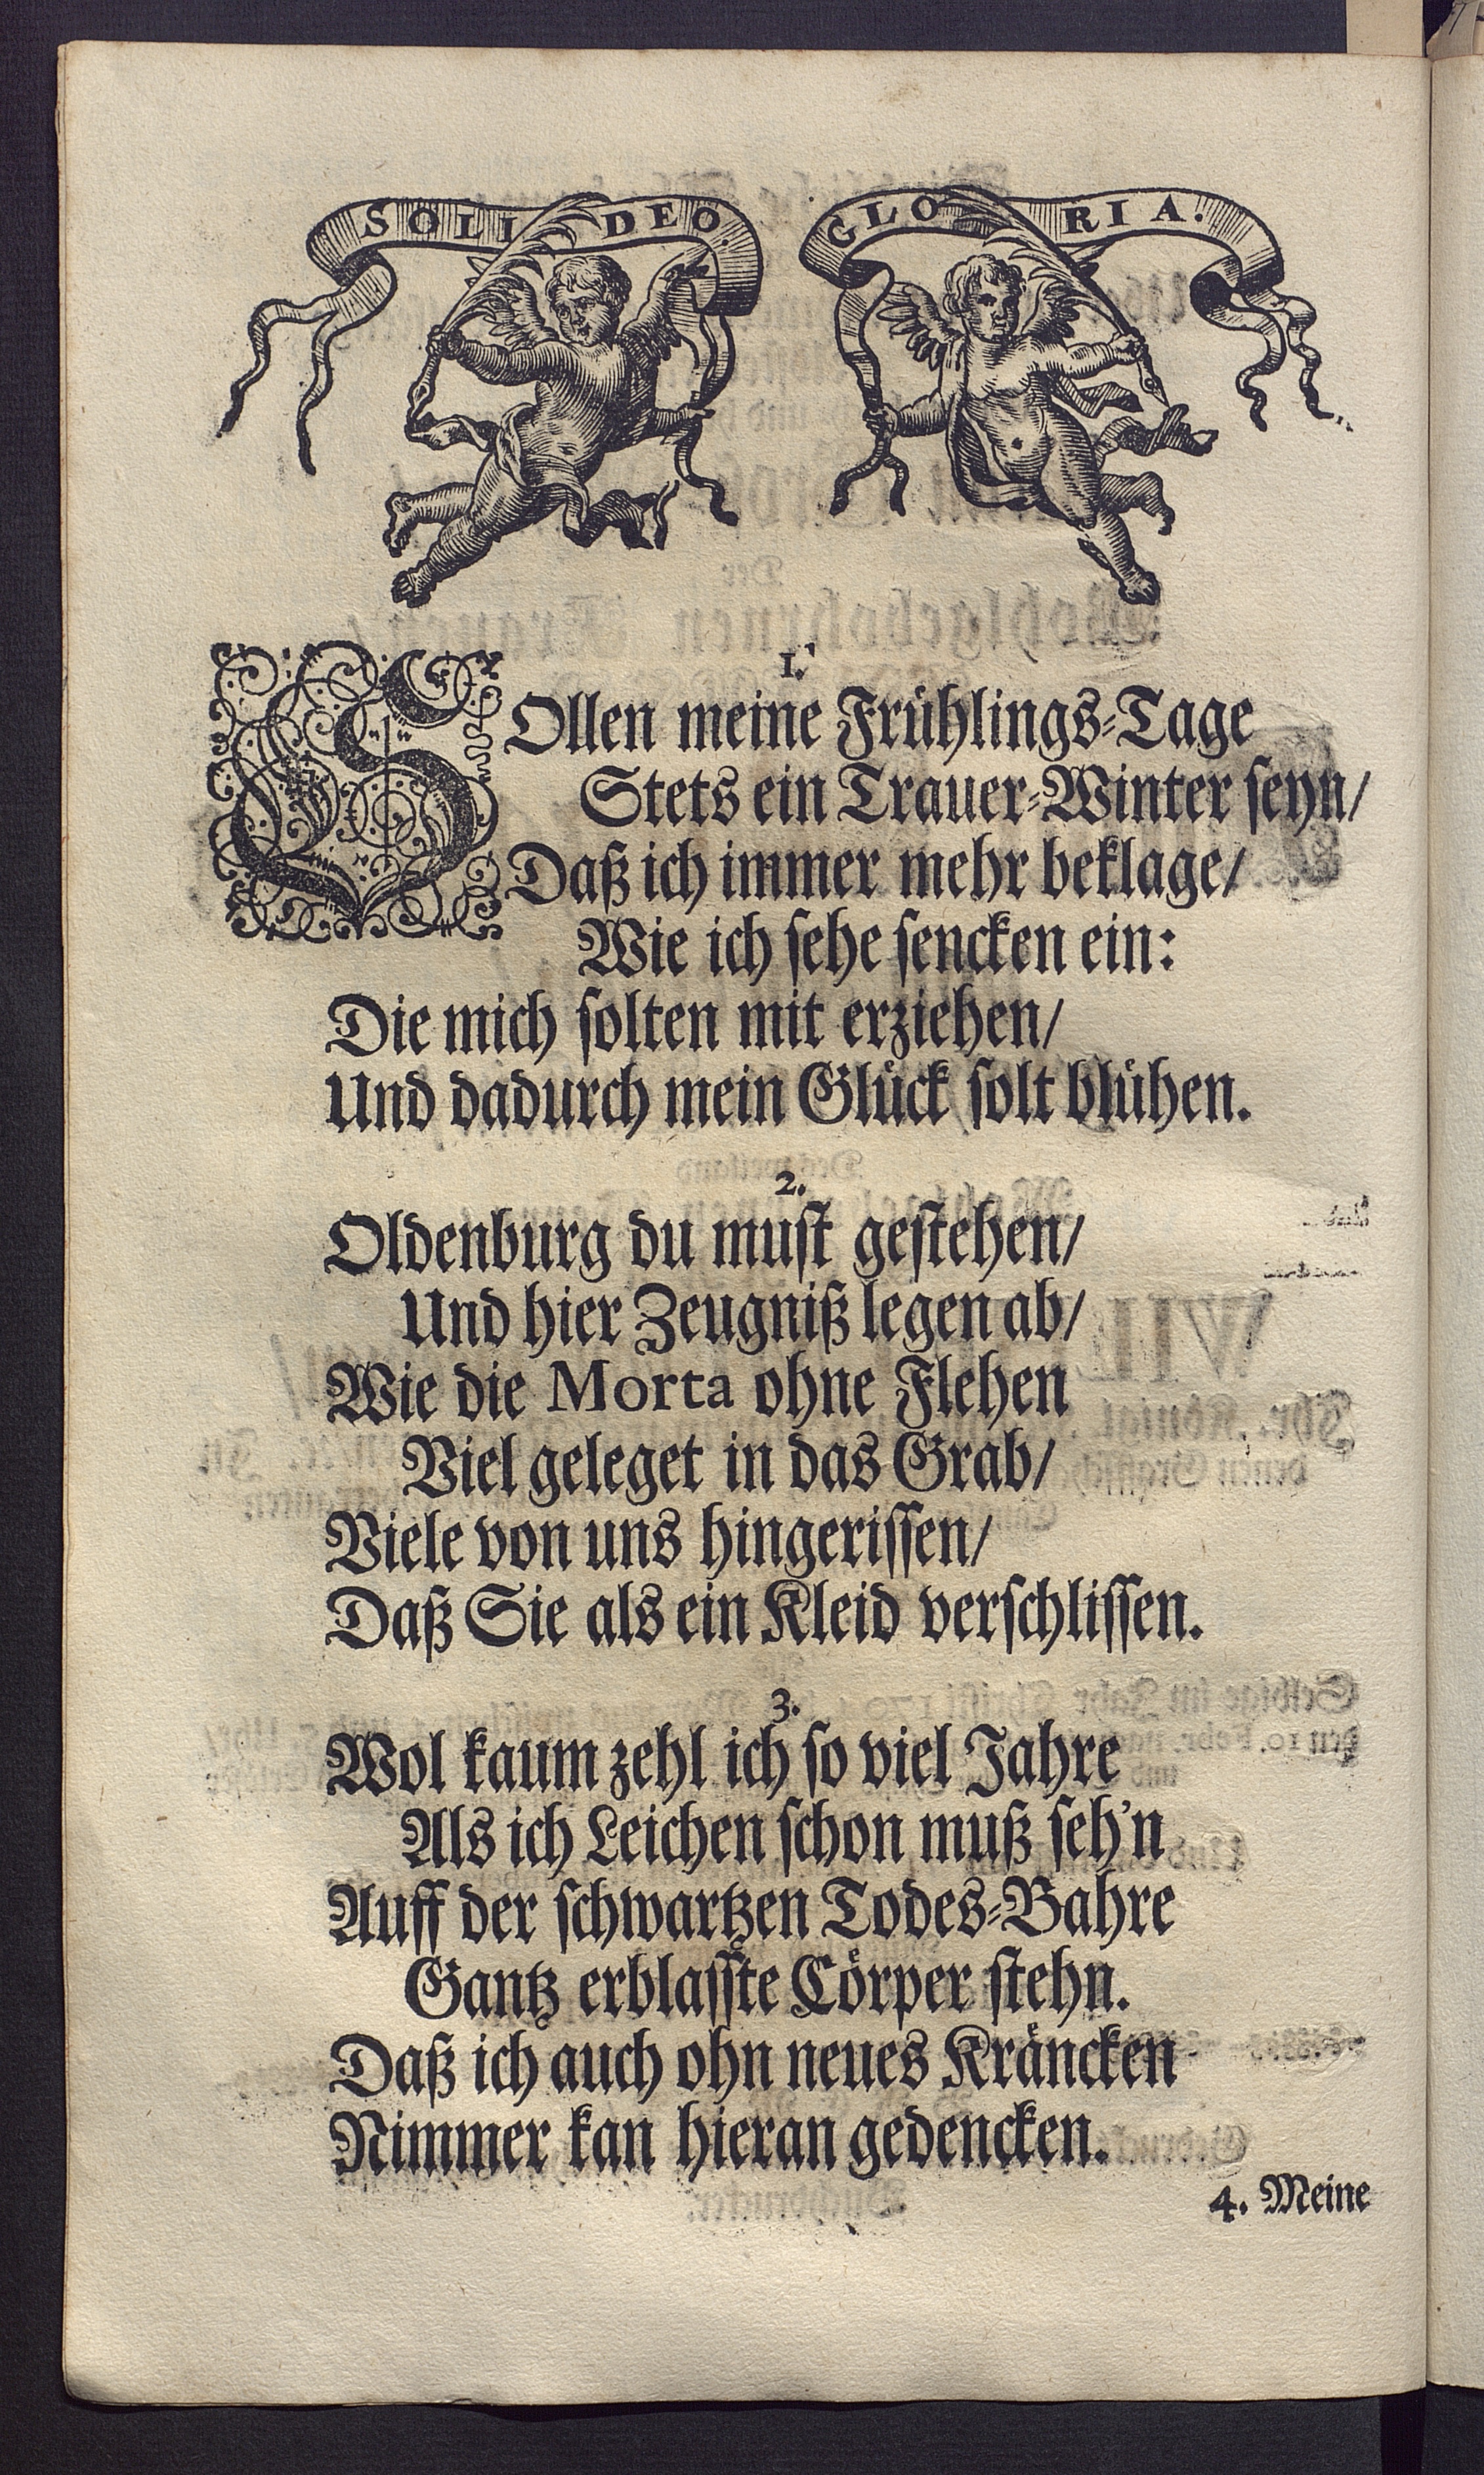 SOLI DEO. GLORIA.
1.
SOllen meine Frühlings-Tage
Stets ein Trauer-Winter seyn/
Daß ich immer mehr beklage/
Wie ich sehe sencken ein:
Die mich solten mit erziehen/
Und dadurch mein Glück solt blühen.
2.
Oldenburg du must gestehen/
Und hier Zeugniß legen ab/
Wie die Morta ohne Flehen
Viel geleget in das Grab/
Viele von uns hingerissen/
Daß Sie als ein Kleid verschlissen.
3.
Wol kaum zehl ich so viel Jahre
Als ich Leichen schon muß seh'n
Auff der schwartzen Todes-Bahre
Gantz erblasste Cörper stehn.
Daß ich auch ohn neues Kräncken
Nimmer kan hieran gedencken.
4. Meine